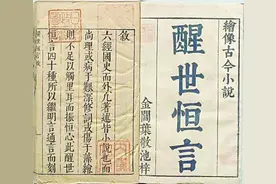 繪像古今小說
醒世恒言
金閶葉敬池梓
敘
六經國史而外凡著述皆小說也而
尚理或病于艱深修詞或傷于藻繪
則不足以觸里耳而振恒心此醒世
恒言四十種所以繼明言通言而刻